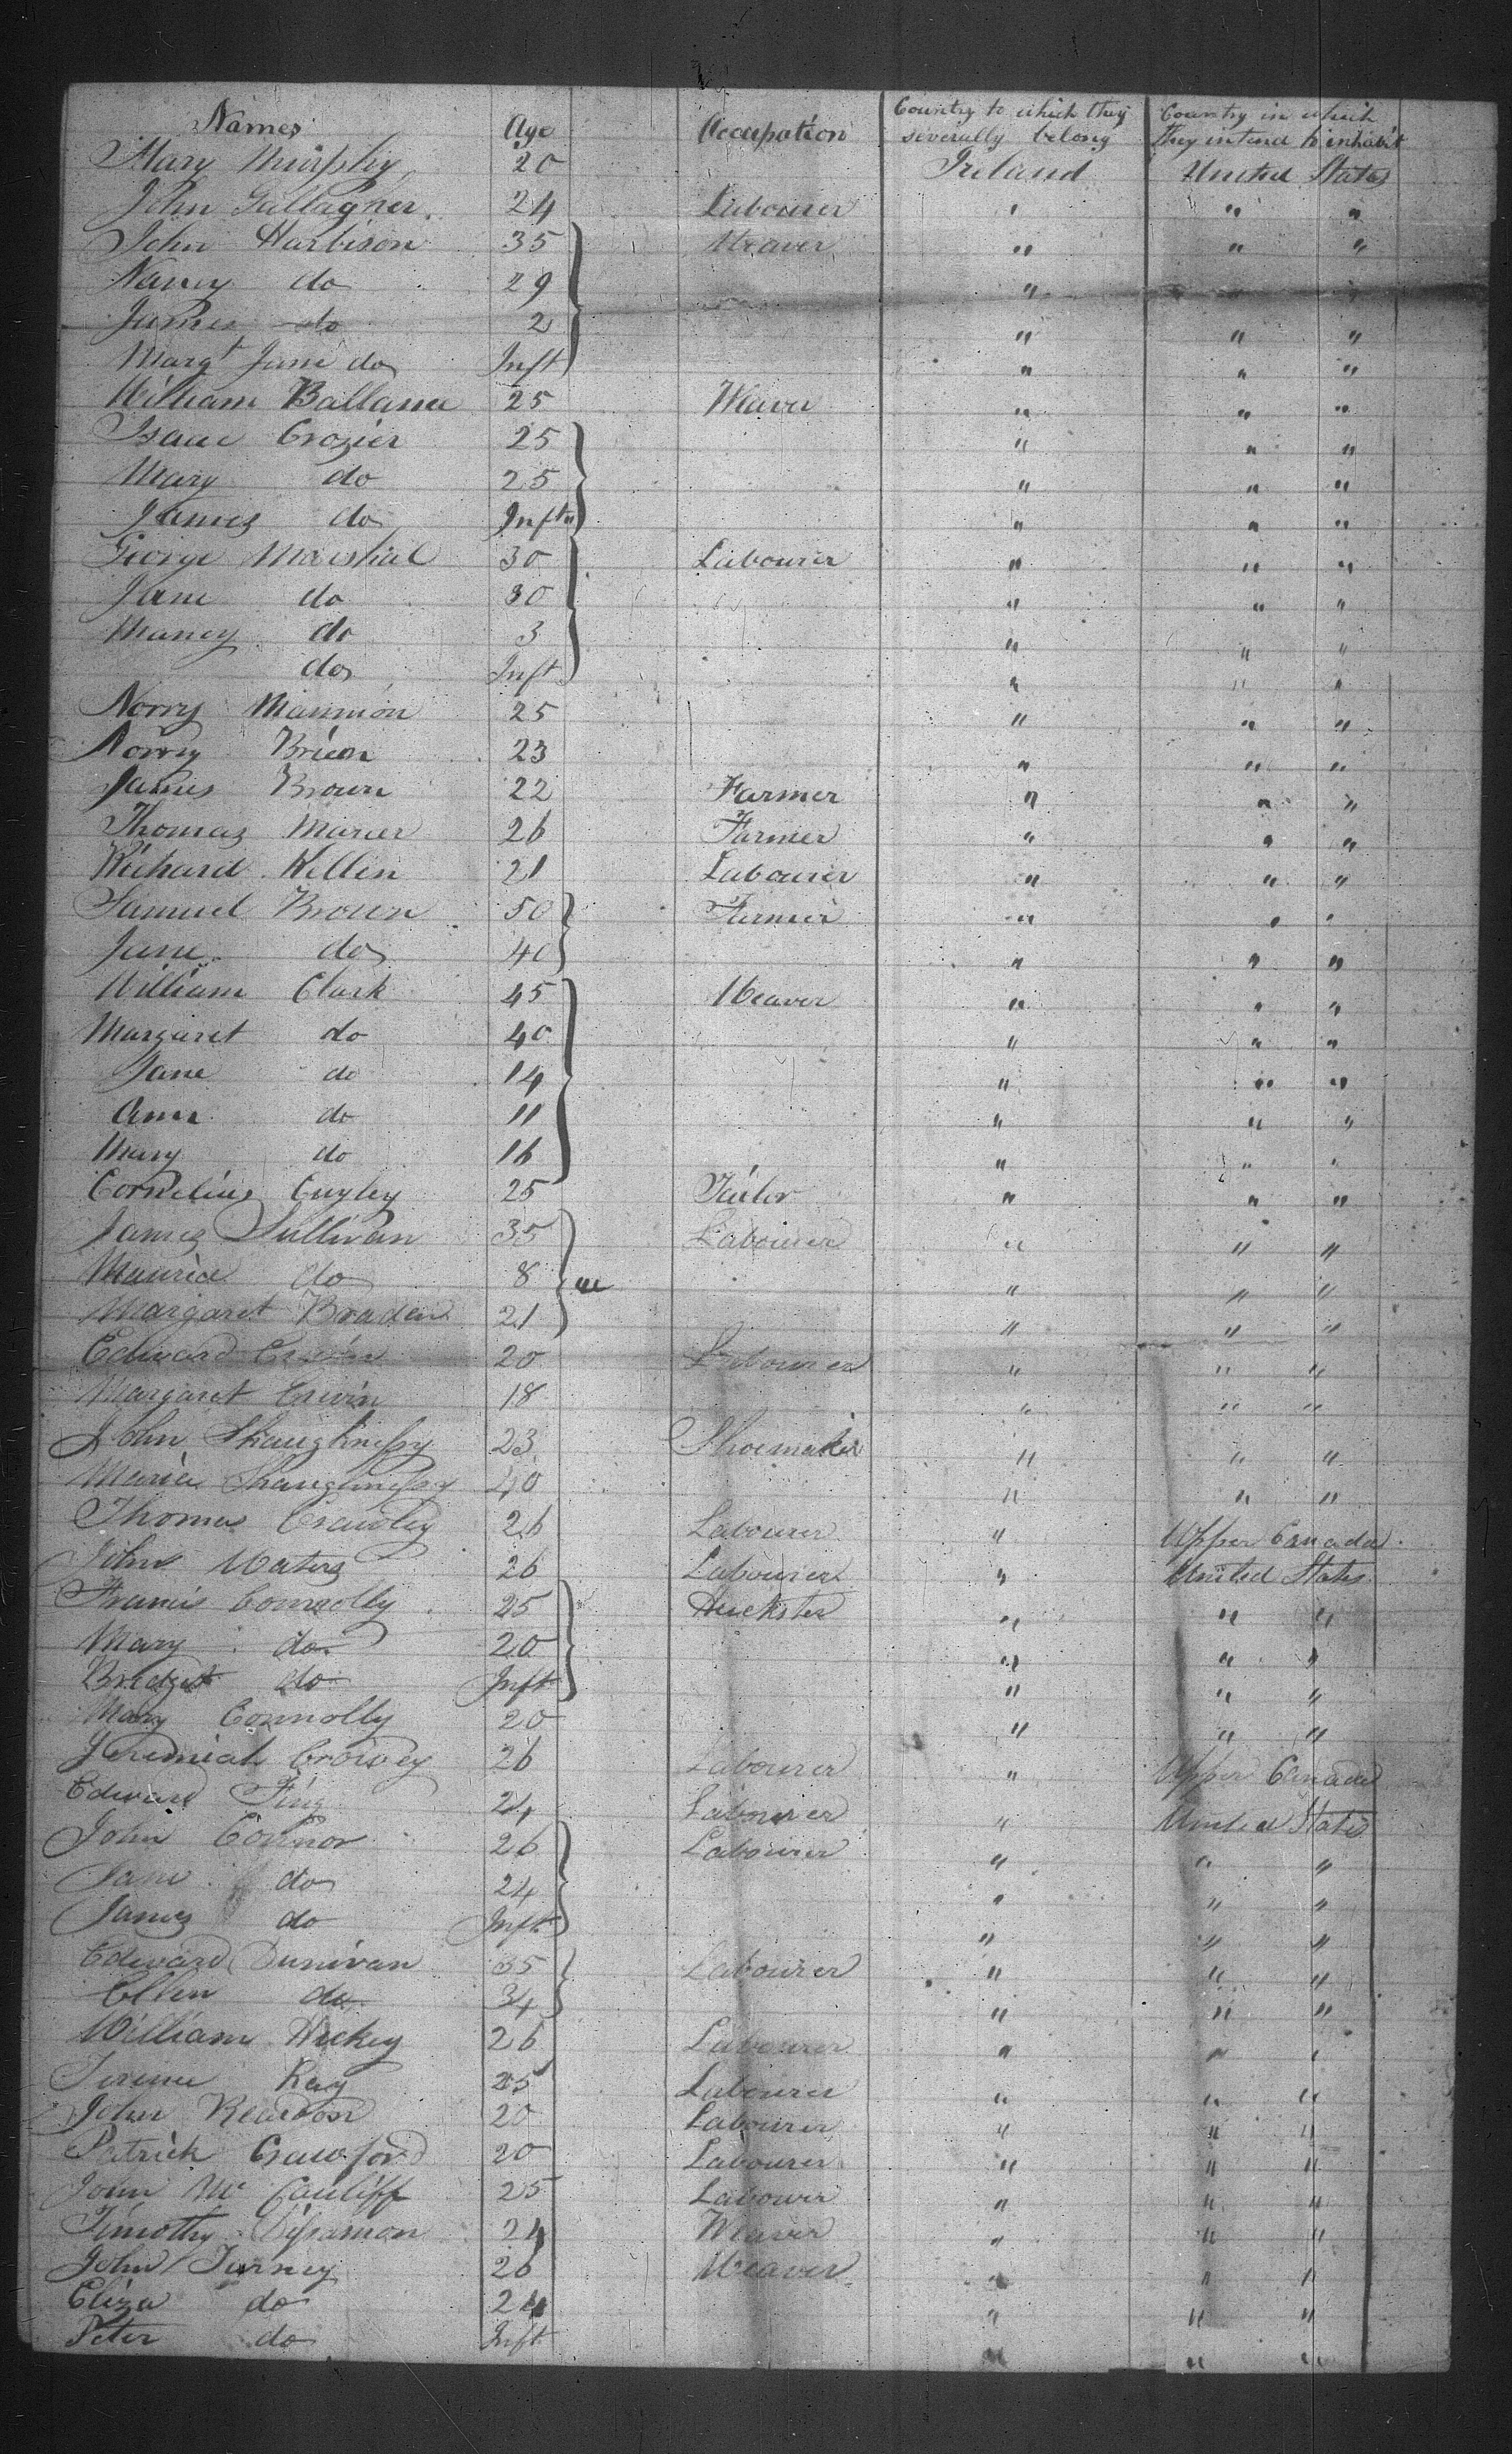 Names Age Occupation Country to which they severally belong Country in which they intend to inhabit
Mary Murphy 20 Ireland United States
John Gallagher 24 Labourer " " "
John Harbison 35 Weaver " " "
Nancy do 29 " " "
James do 2 " " "
Margt Jane do Inft " " "
William Ballance 25 Weaver " " "
Isaac Crozier 25 " " "
Mary do 25 " " "
James do Inft " " "
George Marshal 30 Labourer " " "
Jane do 30 " " "
Nancy do 3 " " "
do Inft " " "
Norry Mannion 25 " " "
Norry Brien 23 " " "
James Brown 22 Farmer " " "
Thomas 26 Farmer " " "
Richard Killen 21 Labourer " " "
Samuel Brown 50 Farmer " " "
Jane do 40 " " "
William Clark 45 Weaver " " "
Margaret do 40 " " "
Jane do 14 " " "
Ann do 11 " " "
Mary do 16 " " "
Cornelius 25 Tailor " " "
James Sullivan 35 Labourer " " "
Maurice do 8 " " "
Margaret Braden 21 " " "
Edward Erwin 20 Labourer " " "
Margaret Erwin 18 " " "
John Shaughnessy 23 Shoemaker " " "
Maria Shaughnessy 40 " " "
Thomas Crawley 26 Labourer " Upper Canada
John Waters 26 Labourer " United States
Francis Connolly 25 Huckster " " "
Mary do 20 " " "
Bridget do Inft " " "
Mary Connolly 20 " " "
Jeremiah Crowey 26 Labourer " Upper Canada
Edward 24 Labourer " United States
John Connor 26 Labourer " " "
Jane do 24 " " "
James do Inft " " "
Edward Dunivan 35 Labourer " " "
Ellen do 34 " " "
William Hickey 26 Labourer " " "
Terence Kay 25 Labourer " " "
John Reardon 20 Labourer " " "
Patrick Crawford 20 Labourer " " "
John Mc Cauliff 25 Labourer " " "
Timothy 24 Weaver " " "
John Turney 26 Weaver " " "
Eliza do 24 " " "
Peter do Inft " " "